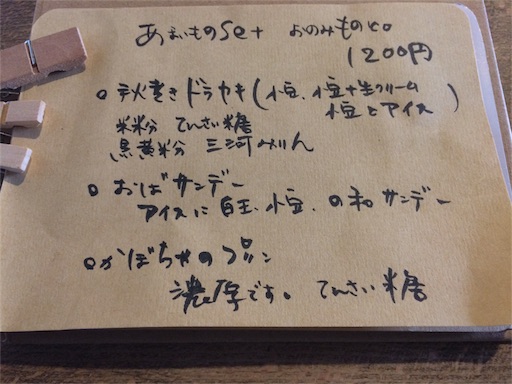 あまいものSet おのみものと。
1200円
○ 手火焼き ドラヤキ(小豆、小豆+生クリーム
小豆とアイス)
米粉 てんさい糖
黒黄粉 三河みりん
○ おばサンデー
アイスに白玉、小豆、の和サンデー
○ かぼちゃのプリン
濃厚です。 てんさい糖